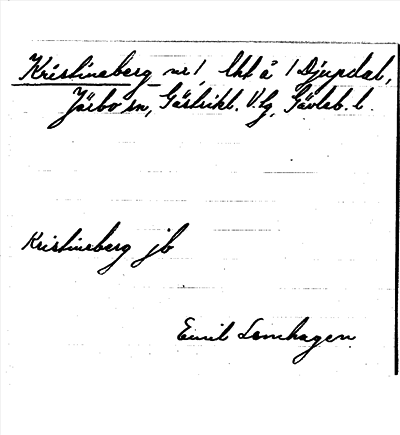 Kristineberg nr 1, lht å 1 Djupdal,
Järbo sn, Gästrikl. V. tg, Gävleb. l.
Kristineberg jb
Emil Lernhagen